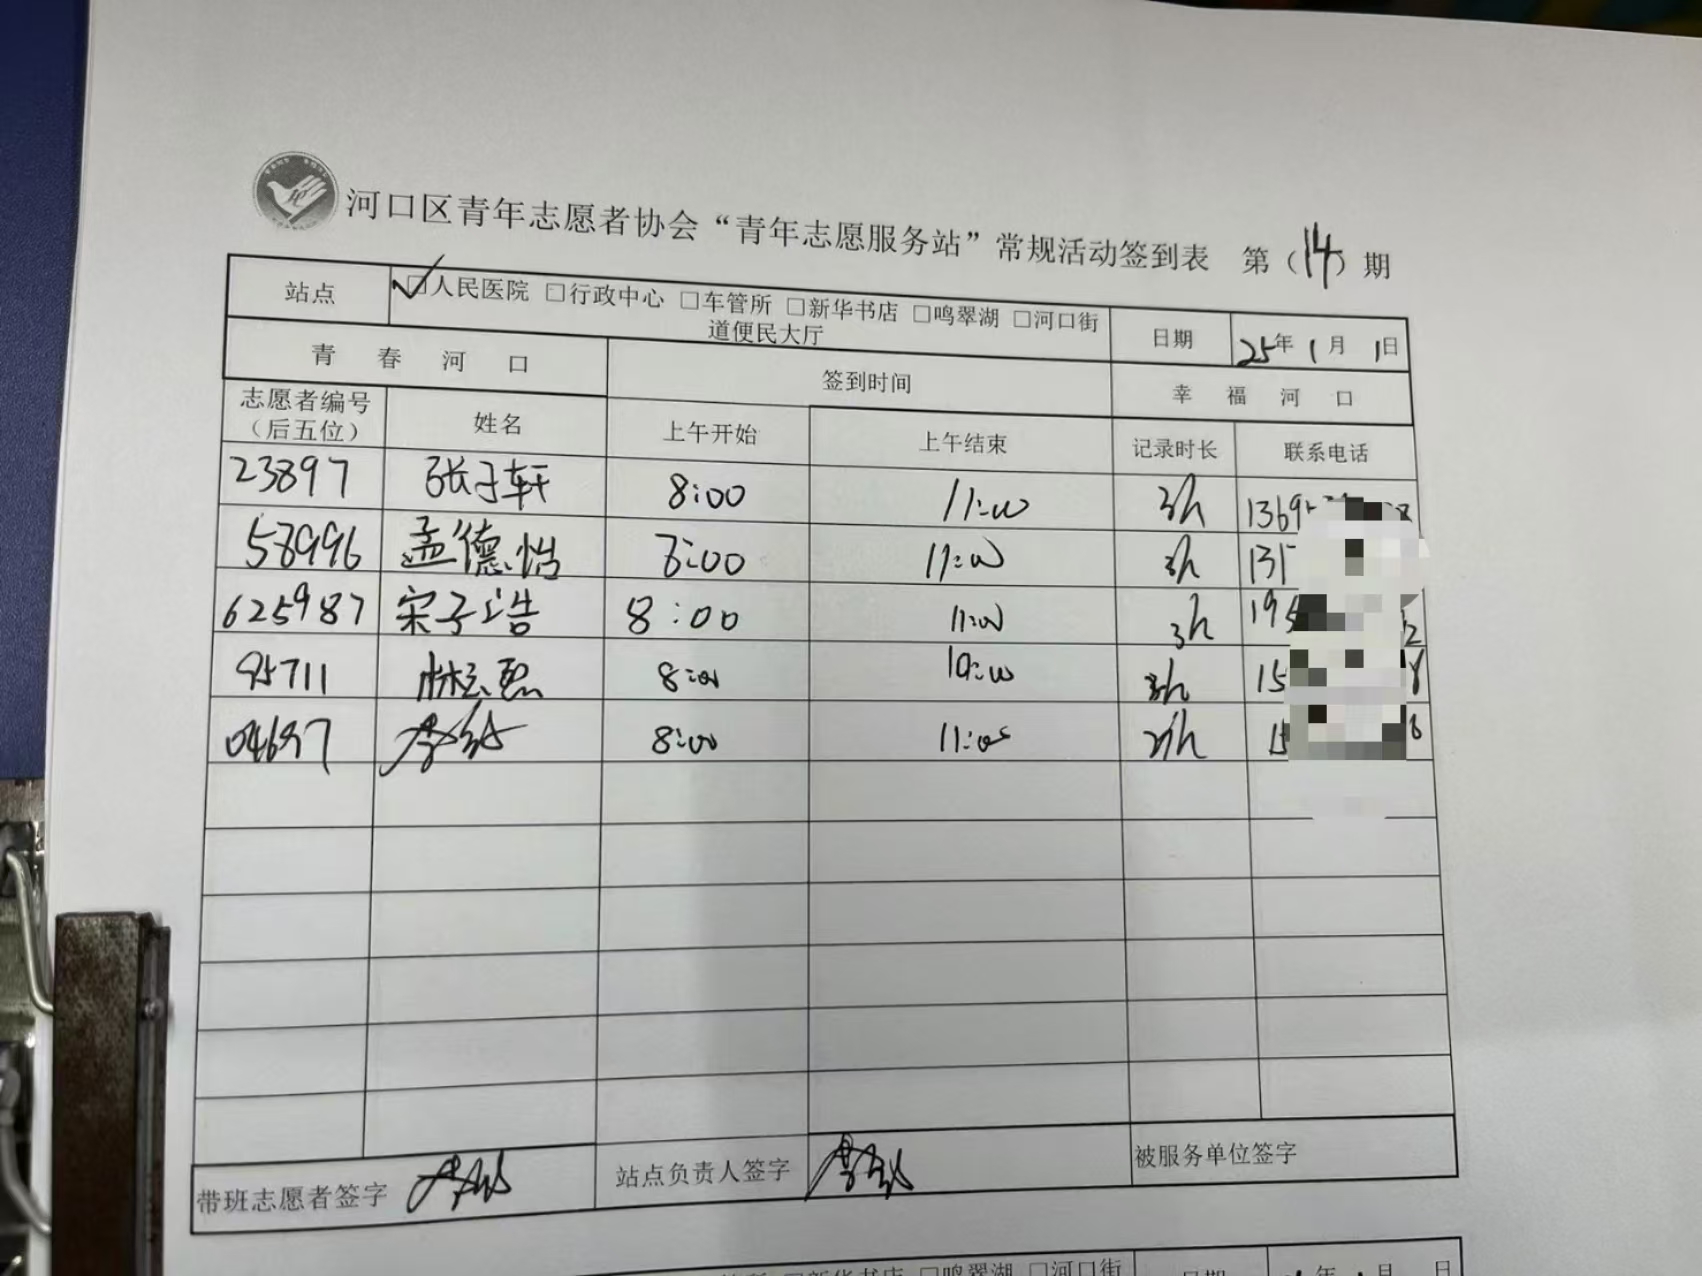 河口区青年志愿者协会“青年志愿服务站”常规活动签到表 第（14）期
站点 ☑人民医院 □行政中心 □车管所 □新华书店 □鸣翠湖 □河口街道便民大厅 日期 25年1月1日
青春河口 签到时间 幸福河口
志愿者编号（后五位） 姓名 上午开始 上午结束 记录时长 联系电话
23897 张子轩 8:00 11:00 3h 1369
58996 孟德怡 8:00 11:00 3h 131
625987 宋子浩 8:00 11:00 3h 195 2
95711 8:00 10:00 3h 15 8
04697 8:00 11:00 15 6
带班志愿者签字 站点负责人签字 被服务单位签字
新华书店 □鸣翠湖 □河口街 日期 年 月 日